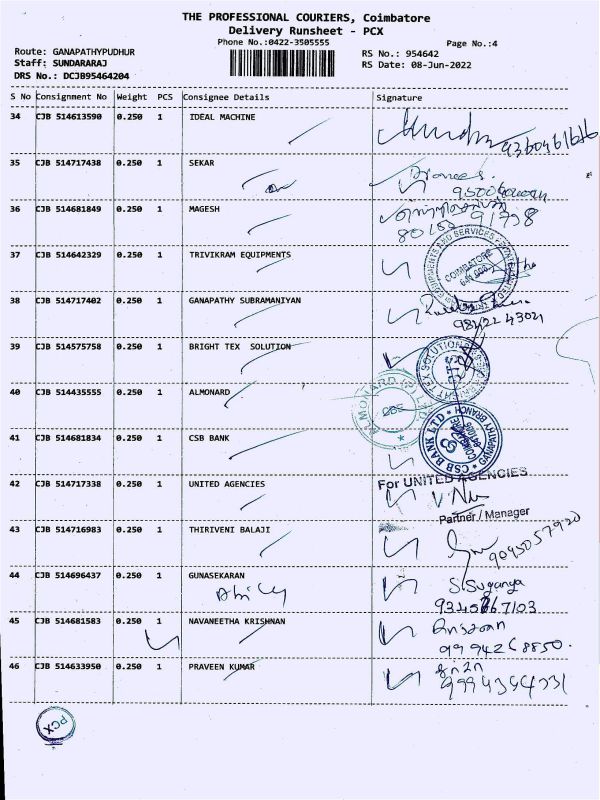 THE PROFESSIONAL COURIERS, Coimbatore
Delivery Runsheet - PCX
Phone No.:0422-3505555
Page No.:4
Route: GANAPATHYPUDHUR
RS No.: 954642
Staff: SUNDARARAJ
RS Date: 08-Jun-2022
DRS No.: DCJB95464204
S No Consignment No Weight PCS Consignee Details Signature
34 CJB 514613590 0.250 1 IDEAL MACHINE
35 CJB 514717438 0.250 1 SEKAR
36 CJB 514681849 0.250 1 MAGESH
37 CJB 514642329 0.250 1 TRIVIKRAM EQUIPMENTS
COIMBATORE
38 CJB 514717402 0.250 1 GANAPATHY SUBRAMANIYAN
98422 43021
39 CJB 514575758 0.250 1 BRIGHT TEX SOLUTION
40 CJB 514435555 0.250 1 ALMONARD
41 CJB 514681834 0.250 1 CSB BANK
CSB BANK LTD
42 CJB 514717338 0.250 1 UNITED AGENCIES
For UNITED AGENCIES
Partner / Manager
43 CJB 514716983 0.250 1 THIRIVENI BALAJI
9095057920
44 CJB 514696437 0.250 1 GUNASEKARAN
S.Suganya
45 CJB 514681583 0.250 1 NAVANEETHA KRISHNAN
46 CJB 514633950 0.250 1 PRAVEEN KUMAR
PCX